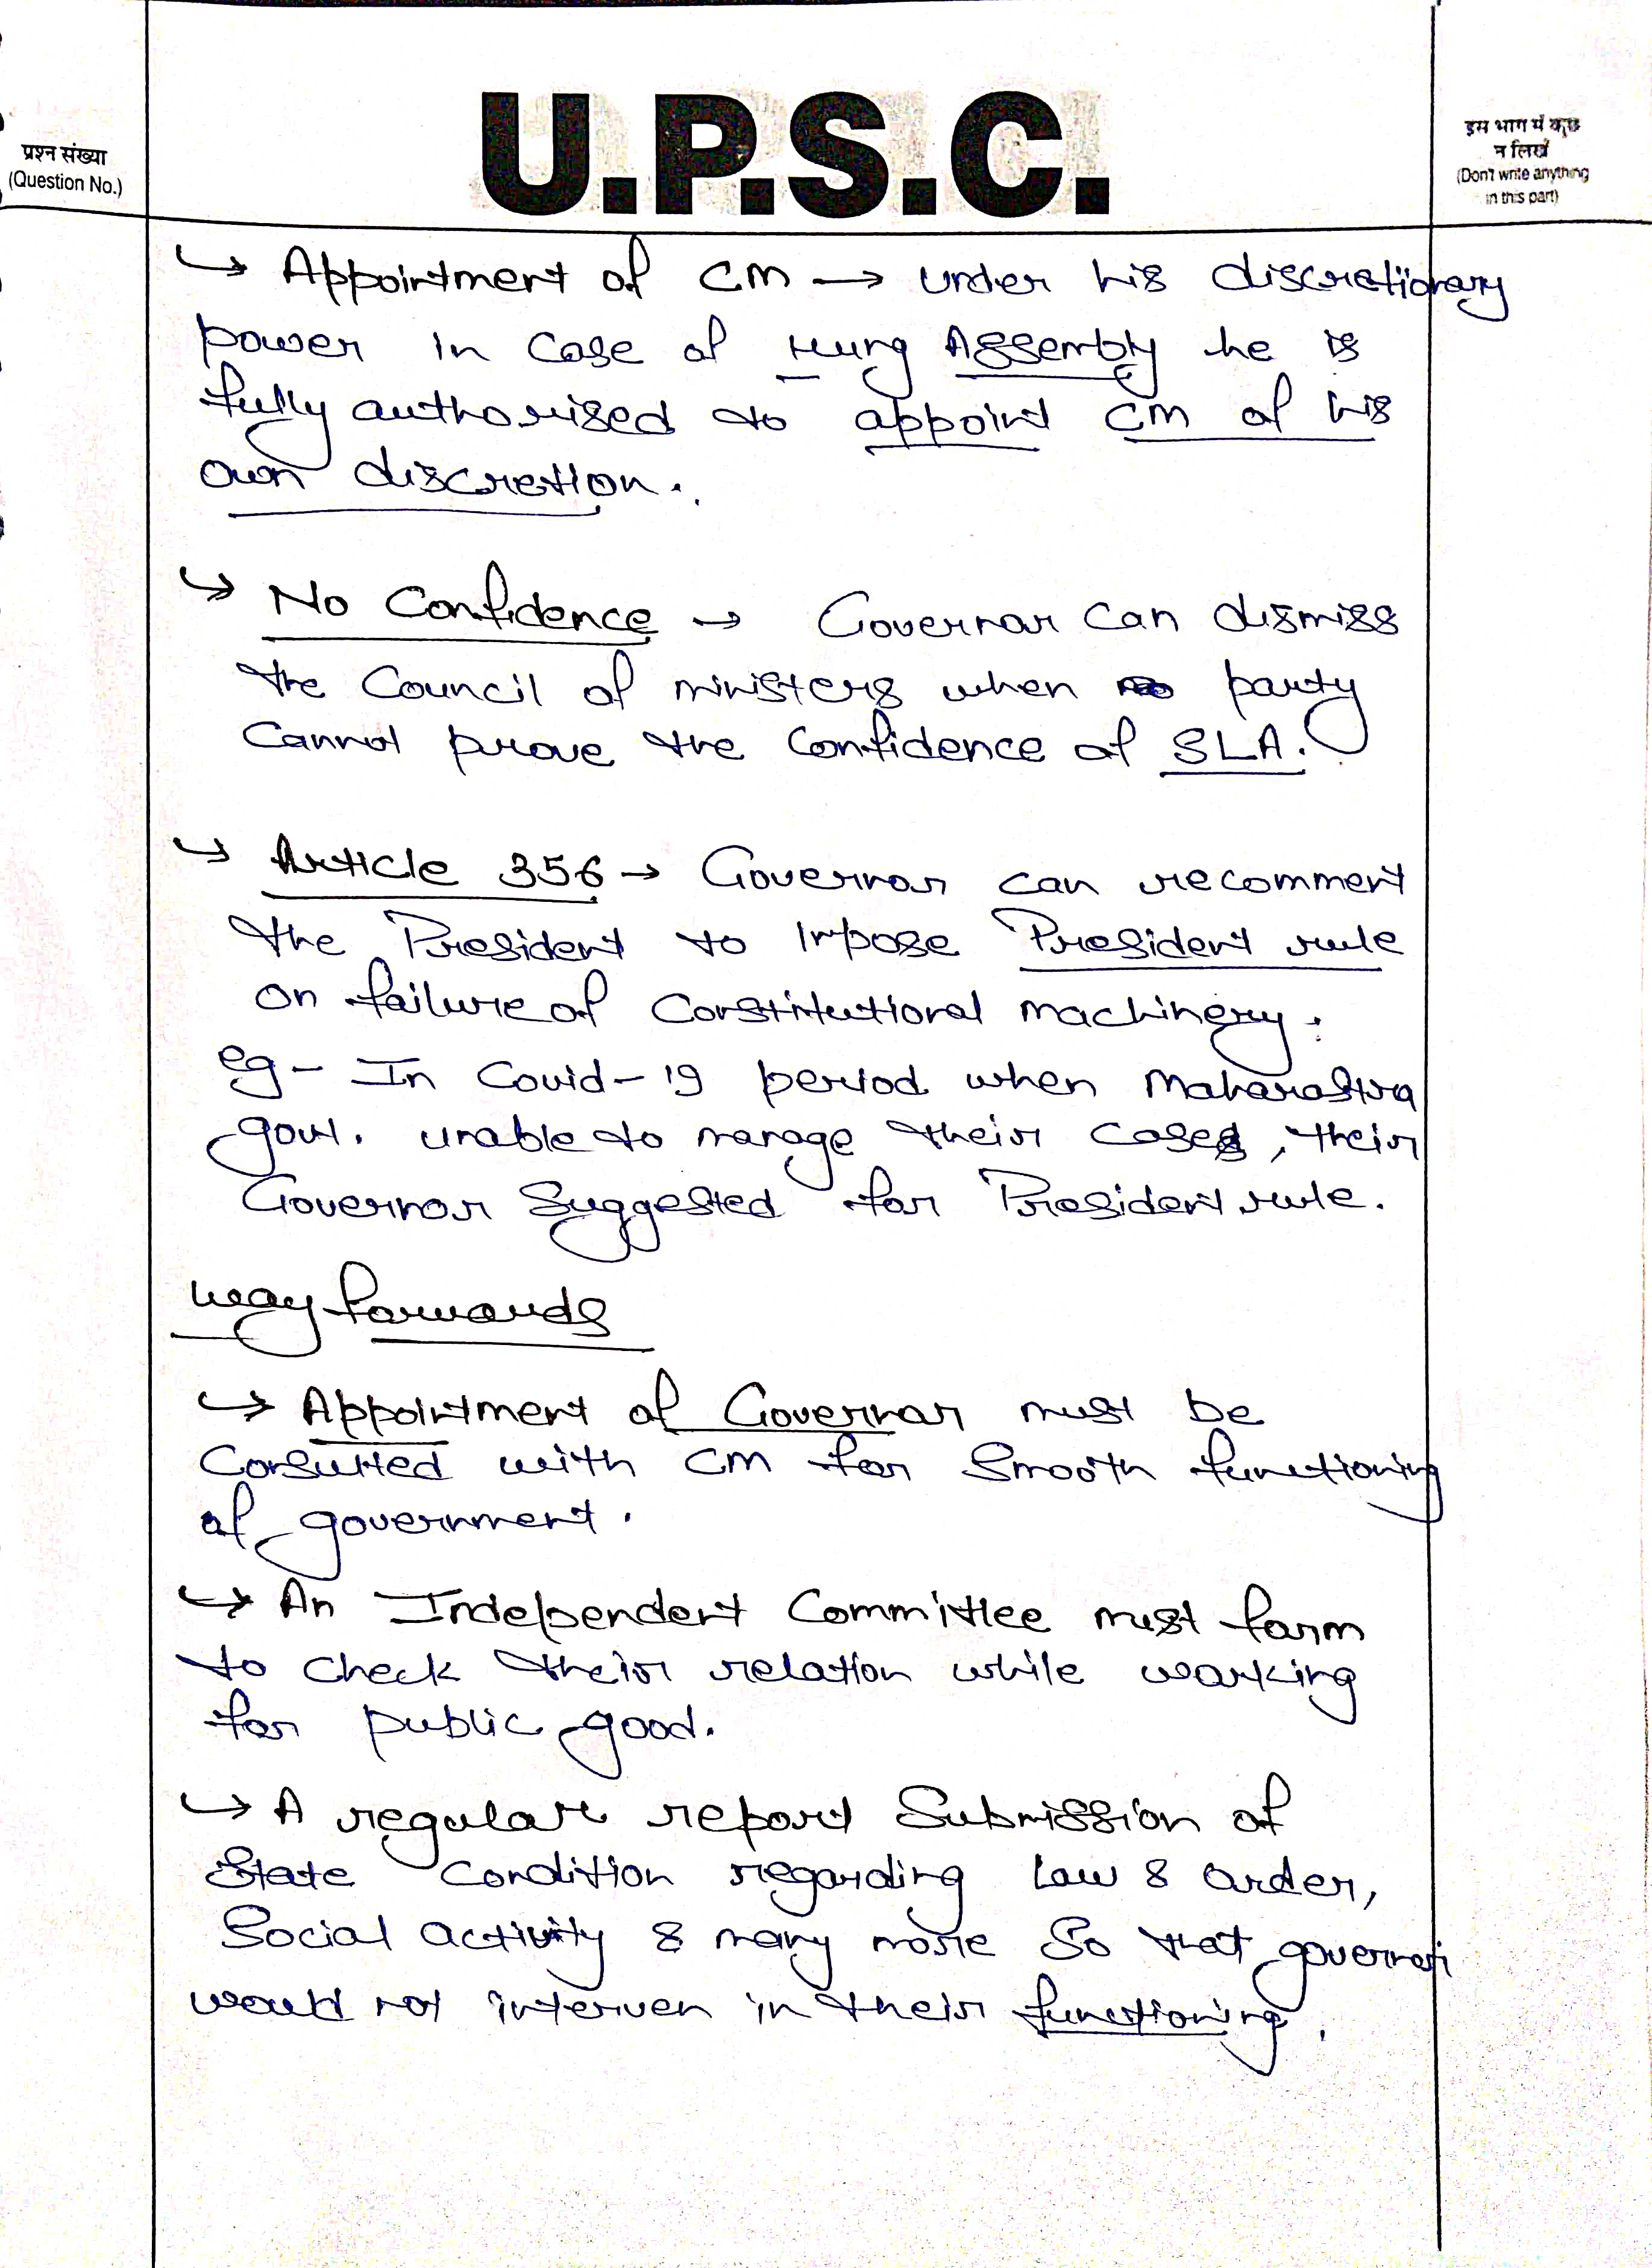 प्रश्न संख्या
(Question No.)
U.P.S.C.
इस भाग में कुछ
न लिखें
(Don't write anything
in this part)
↪ Appointment of CM → under his discretionary
power in case of Hung Assembly he is
fully authorised to appoint CM of his
own discretion.
↪ No Confidence → Governor can dismiss
the Council of ministers when party
cannot prove the confidence of SLA.
↪ Article 356 → Governor can recomment
the President to impose President rule
on failure of Constitutional machinery.
eg - In Covid-19 period when Maharastra
govt. unable to manage their cases, their
Governor Suggested for President rule.
Way forwards
↪ Appointment of Governor must be
Consulted with CM for Smooth functioning
of government.
↪ An Independent Committee must form
to check their relation while working
for public good.
↪ A regular report Submission of
State Condition regarding Law & order,
Social activity & many more So that governor
would not interven in their functioning.